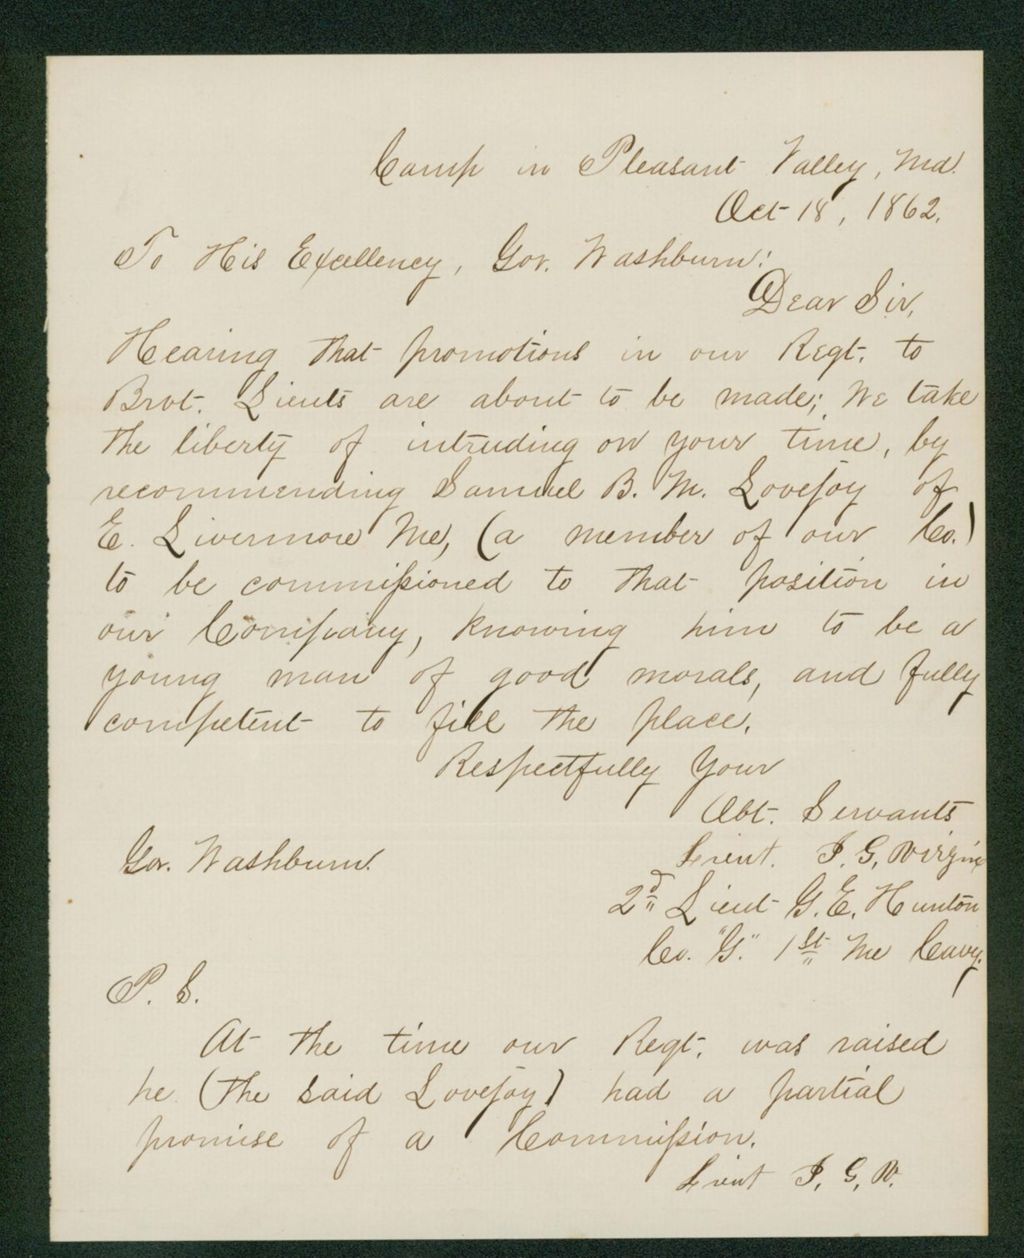 Camp in Pleasant Valley, Md.
Oct 18, 1862.
To His Excellency, Gov. Washburn:
Dear Sir,
Hearing that promotions in our Regt. to
Brvt. Lieuts are about to be made; We take
the liberty of intruding on your time, by
recommending Samuel B. M. Lovejoy of
E. Livermore Me, (a member of our Co.)
to be commissioned to that position in
our Company, knowing him to be a
young man of good morals, and fully
competent to fill the place.
Respectfully Your
Obt. Servants
Gov. Washburn.
Lieut. I. G. Virgin
2d Lieut G. E. Hunton
Co. "G." 1st Me Cavy.
P. S.
At the time our Regt. was raised
he (the said Lovejoy) had a partial
promise of a Commission.
Lieut I. G. V.